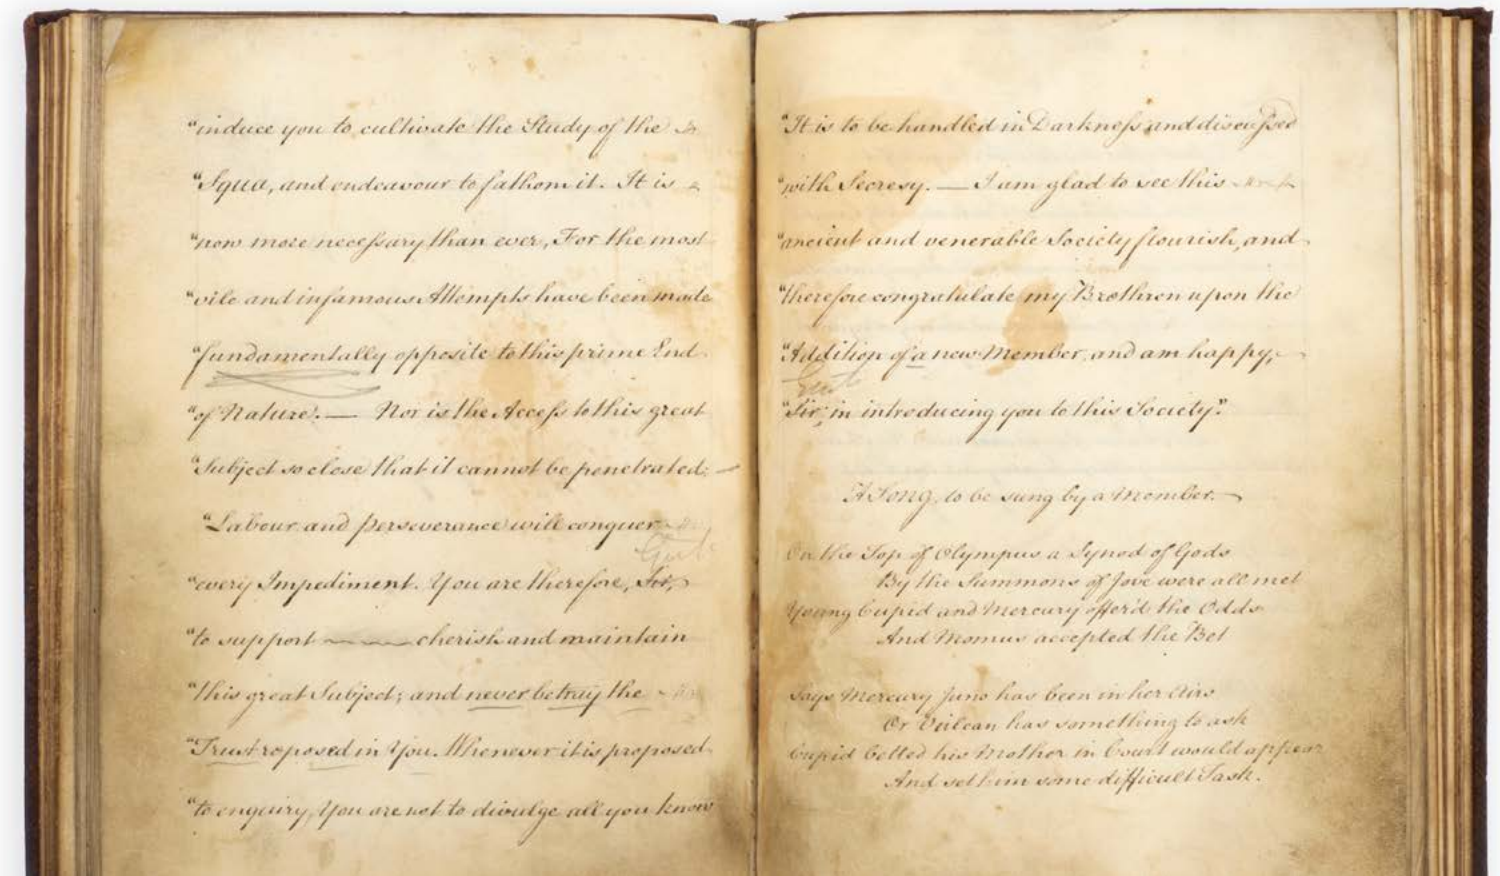 "induce you to cultivate the Study of the
"Squa, and endeavour to fathom it. It is
"now more necessary than ever, For the most
"vile and infamous Attempts have been made
"fundamentally opposite to this prime End
"of Nature. — Nor is the Access to this great
"Subject so close that it cannot be penetrated: —
"Labour and Perseverance will conquer
Gent
"every Impediment. You are therefore, Sir,
"to support cherish and maintain
"this great Subject; and never betray the
"Trust reposed in You. Whenever it is proposed
"to enquiry, You are not to divulge all you know
"It is to be handled in Darkness and discussed
"with Secresy. — I am glad to see this
"ancient and venerable Society flourish, and
"therefore congratulate my Brethren upon the
"Addition of a new Member, and am happy,
Gent
"Sir, in introducing you to this Society."
A Song, to be sung by a Member.
On the Top of Olympus a Synod of Gods
By the Summons of Jove were all met
Young Cupid and Mercury offer'd the Odds
And Momus accepted the Bet
Says Mercury Juno has been in her Airs
Or Vulcan has something to ask
Cupid betted his Mother in Court would appear
And set him some difficult Task.